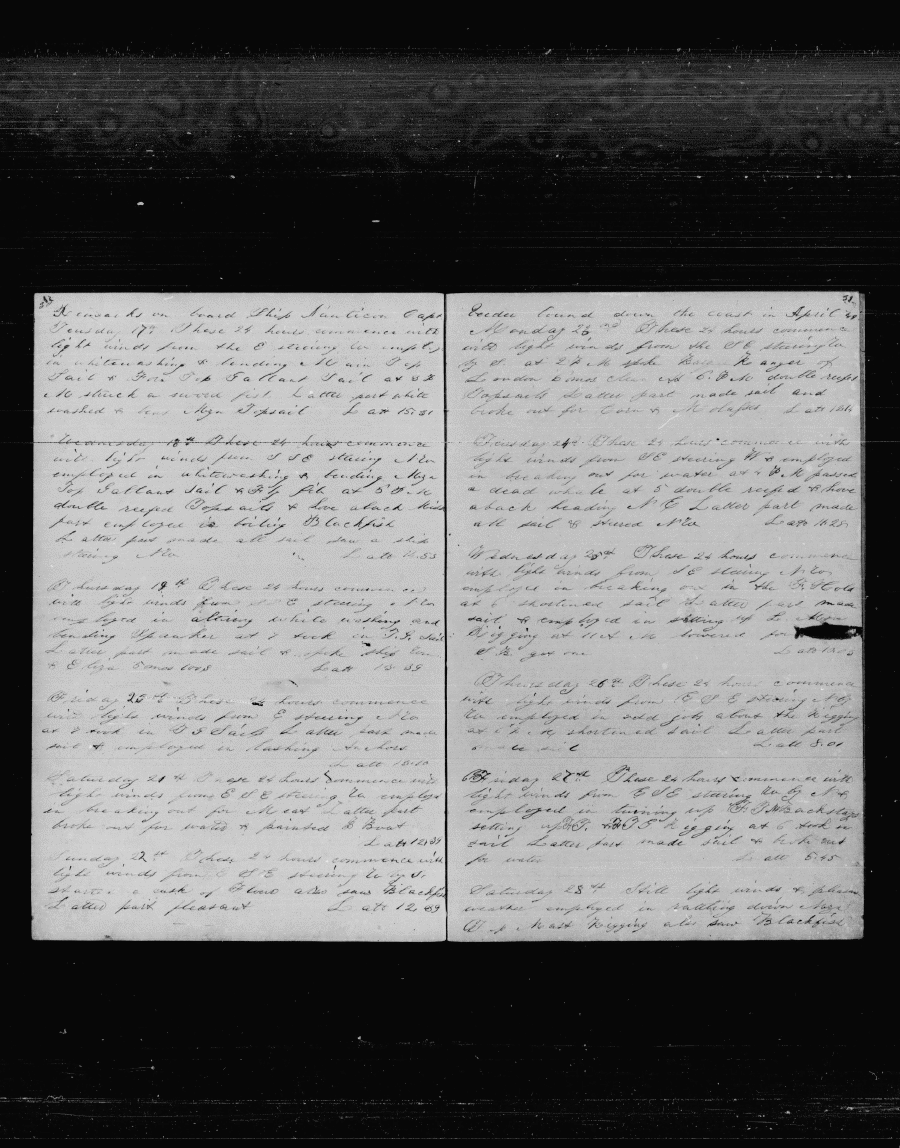 Remarks on board Ship Nauticon Capt
Tuesday 17th These 24 hours commence with
light winds from the E steering W employ
in whitewashing & bending Main Top
Sail & Fore Top Gallant Sail at 3 P
M struck a sword fish Latter part white
washed & bent Mizn Topsail Latt 15.21
Wednesday 18th These 24 hours commence
with light winds from S S E steering N W
employed in whitewashing & bending Mizn
Top Gallant Sail & Fly Jib at 5 P M
double reefed Topsails & hove aback
part employed in boiling Blackfish
Latter part made all sail saw a ship
steering N W Latt 14.53
Thursday 19th These 24 hours commence
with light winds from S E steering N W
employed in white washing and
bending Spanker at 7 took in T. G. Sail
Latter part made sail & spoke ship
& Eliza 5 mos Latt 13.39
Friday 20th These 24 hours commence
with light winds from E steering N W
at 7 took in T G Sails Latter part made
sail & employed in lashing Anchors
Latt 13.10
Saturday 21st These 24 hours commence with
light winds from E S E steering W employd
in breaking out for Meat Latter part
broke out for water & painted B Boat
Latt 12.39
Sunday 22nd These 24 hours commence with
light winds from E S E steering W by S.
started a cask of Flour also saw Blackfish
Latter part pleasant Latt 12.39
Veeder bound down the coast in April 49
Monday 23rd These 24 hours commence
with light winds from the S E steering W
by S at 2 P M spoke Barque Ranger of
London mos clean at 6 P M double reefd
Topsails Latter part made sail and
broke out for Corn & Molasses Latt
Tuesday 24th These 24 hours commence with
light winds from S E steering W & employed
in breaking out for water at 4 P M passed
a dead whale at 5 double reefd & hove
aback heading N E Latter part made
all sail & steered N W Latt
Wednesday 25th These 24 hours commence
with light winds from S E steering N W
employed in breaking out in the F. Hold
at 6 shortened sail Latter part made
sail & employed in setting up Mizn
Rigging at 11 A M lowered for
S. B. got one Latt
Thursday 26th These 24 hours commence
with light winds from E S E steering N by
W employed in odd jobs about the Rigging
at 6 P. M. shortened sail Latter part
made sail Latt 8.01
Friday 27th These 24 hours commence with
light winds from E S E steering W by N &
employed in turning up Backstays
setting up Rigging at 6 took in
sail Latter part made sail & broke out
for water Latt 5.45
Saturday 28th Still light winds & pleasan
weather employed in rattling down Main
Top Mast Rigging also saw Blackfish